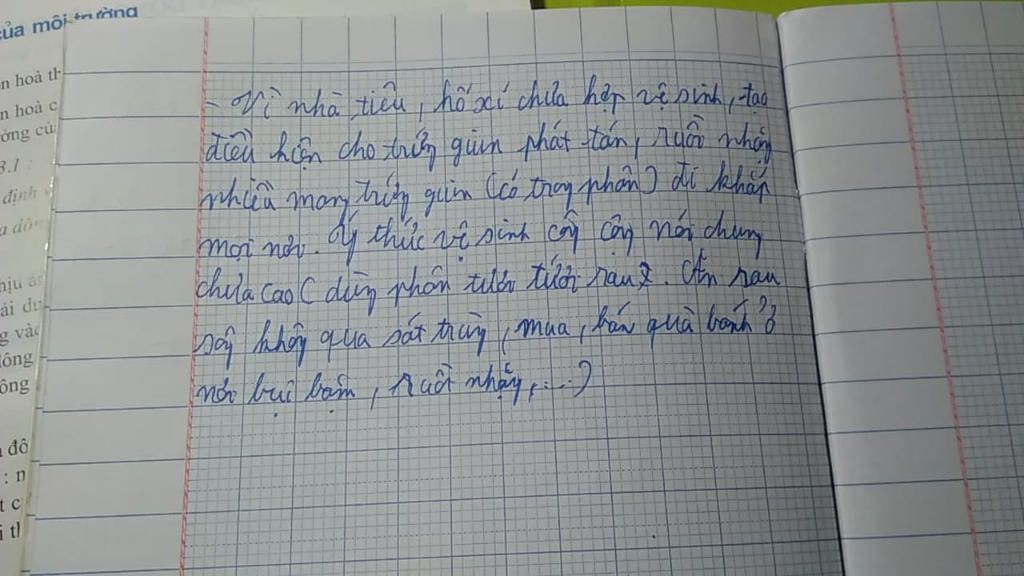 của môi trường
n hoà th
n hoà c
ớng củ
3.1 :
định v
a dòn
hịu ản
ải du
g vào
lông
ông
đô
: n
t c
i th
- Vì nhà tiêu, hố xí chưa hợp vệ sinh, tạo
điều kiện cho trứng giun phát tán, ruồi nhặng
nhiều mang trứng giun (có trong phân) đi khắp
mọi nơi. Ý thức vệ sinh cộng cộng nói chung
chưa cao ( dùng phân tươi tưới rau. Ăn rau
sống không qua sát trùng, mua, bán quà bánh ở
nơi bụi bặm, ruồi nhặng, ...)